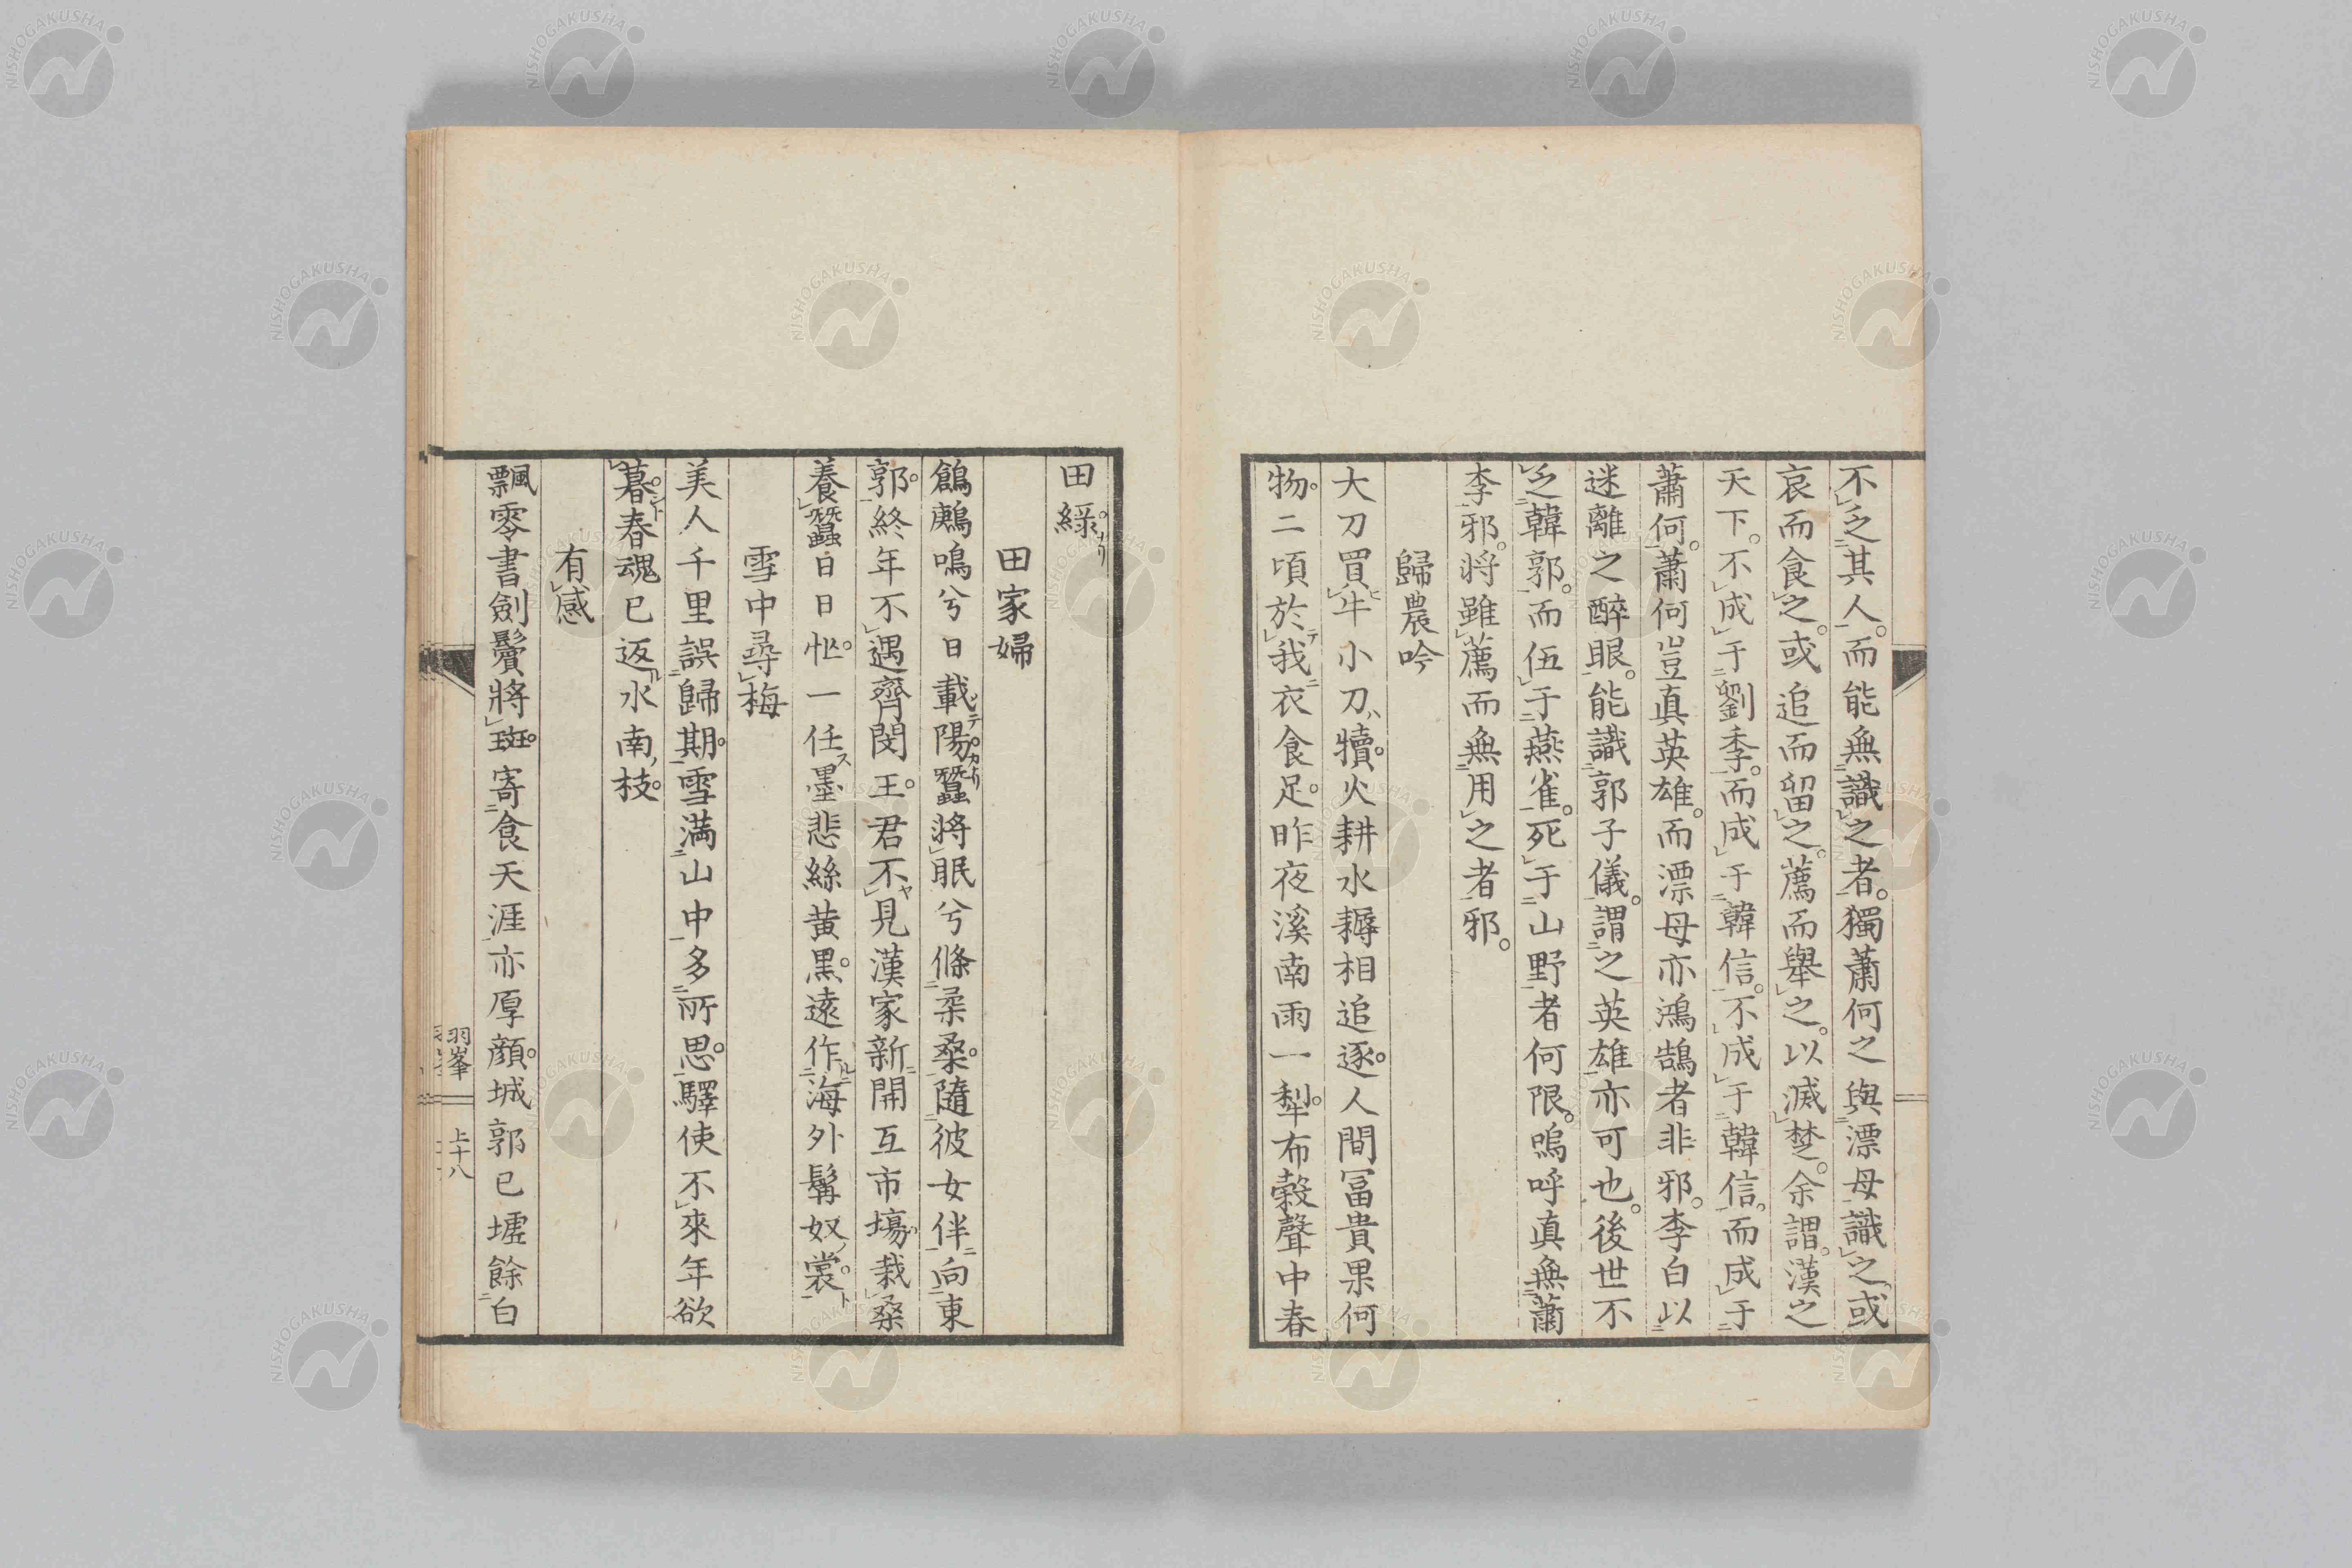 不乏其人。而能無識之者。獨蕭何之與漂母識之。或
哀而食之。或追而留之。薦而舉之。以滅楚。余謂。漢之
天下。不成于劉季。而成于韓信。不成于韓信。而成于
蕭何。蕭何豈真英雄。而漂母亦鴻鵠者非邪。李白以
迷離之醉眼。能識郭子儀。謂之英雄亦可也。後世不
乏韓郭。而伍于燕雀。死于山野者何限。嗚呼真無蕭
李邪。將雖薦而無用之者邪。
歸農吟
大刀買牛小刀犢。火耕水耨相追逐。人間冨貴果何
物。二頃於我衣食足。昨夜溪南雨一犁。布穀聲中春
田綠。
田家婦
鶬鶊鳴兮日載陽。蠶將眠兮條柔桑。隨彼女伴向東
郭。終年不遇齊閔王。君不見漢家新開互市場。栽桑
養蠶日日忙。一任墨悲絲黄黒。遠作海外髯奴裳。
雪中尋梅
美人千里誤歸期。雪滿山中多所思。驛使不來年欲
暮。春魂已返水南枝。
有感
飄零書劍鬢將斑。寄食天涯亦厚顔。城郭已墟餘白
羽峯
上十八
NISHOGAKUSHA